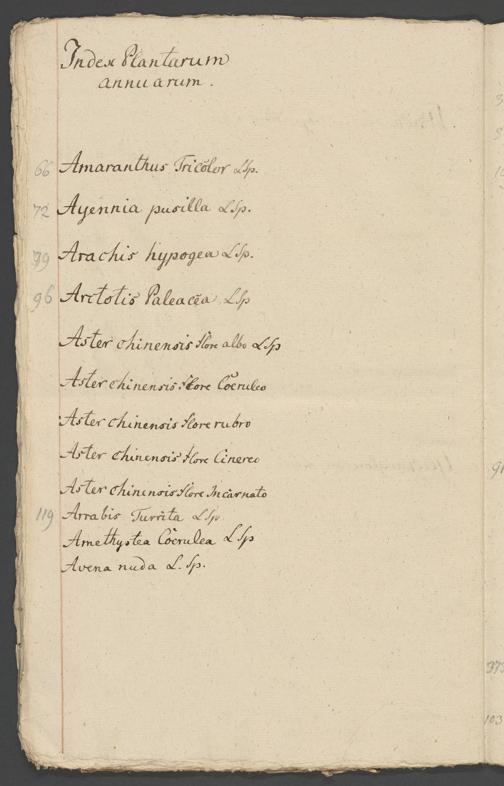 Index Plantarum
annuarum.
66 Amaranthus Tricolor L Sp.
72 Ayennia pusilla L Sp.
99 Arachis hypogea L Sp.
96 Arctotis Paleacea L Sp
Aster chinensis flore albo L Sp
Aster chinensis flore Coeruleo
Aster chinensis flore rubro
Aster chinensis flore Cinereo
Aster chinensis flore Incarnato
119 Arrabis Turrita L Sp
Amethystea Coerulea L Sp
Avena nuda L. Sp.
373
103